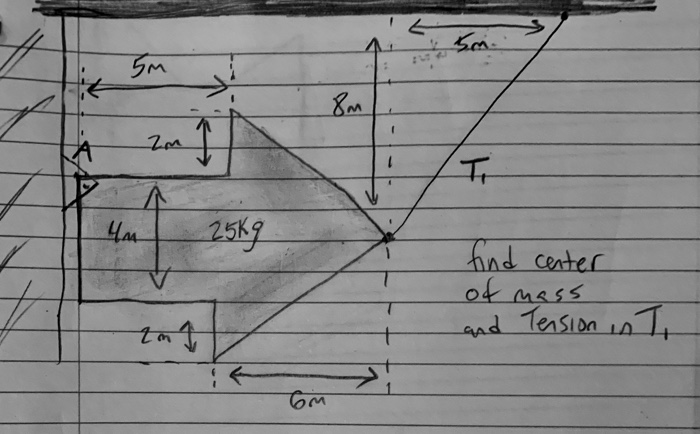 5m
5m
8m
2m
A
T₁
4m
25Kg
find center
of mass
and Tension in T₁
2m
6m